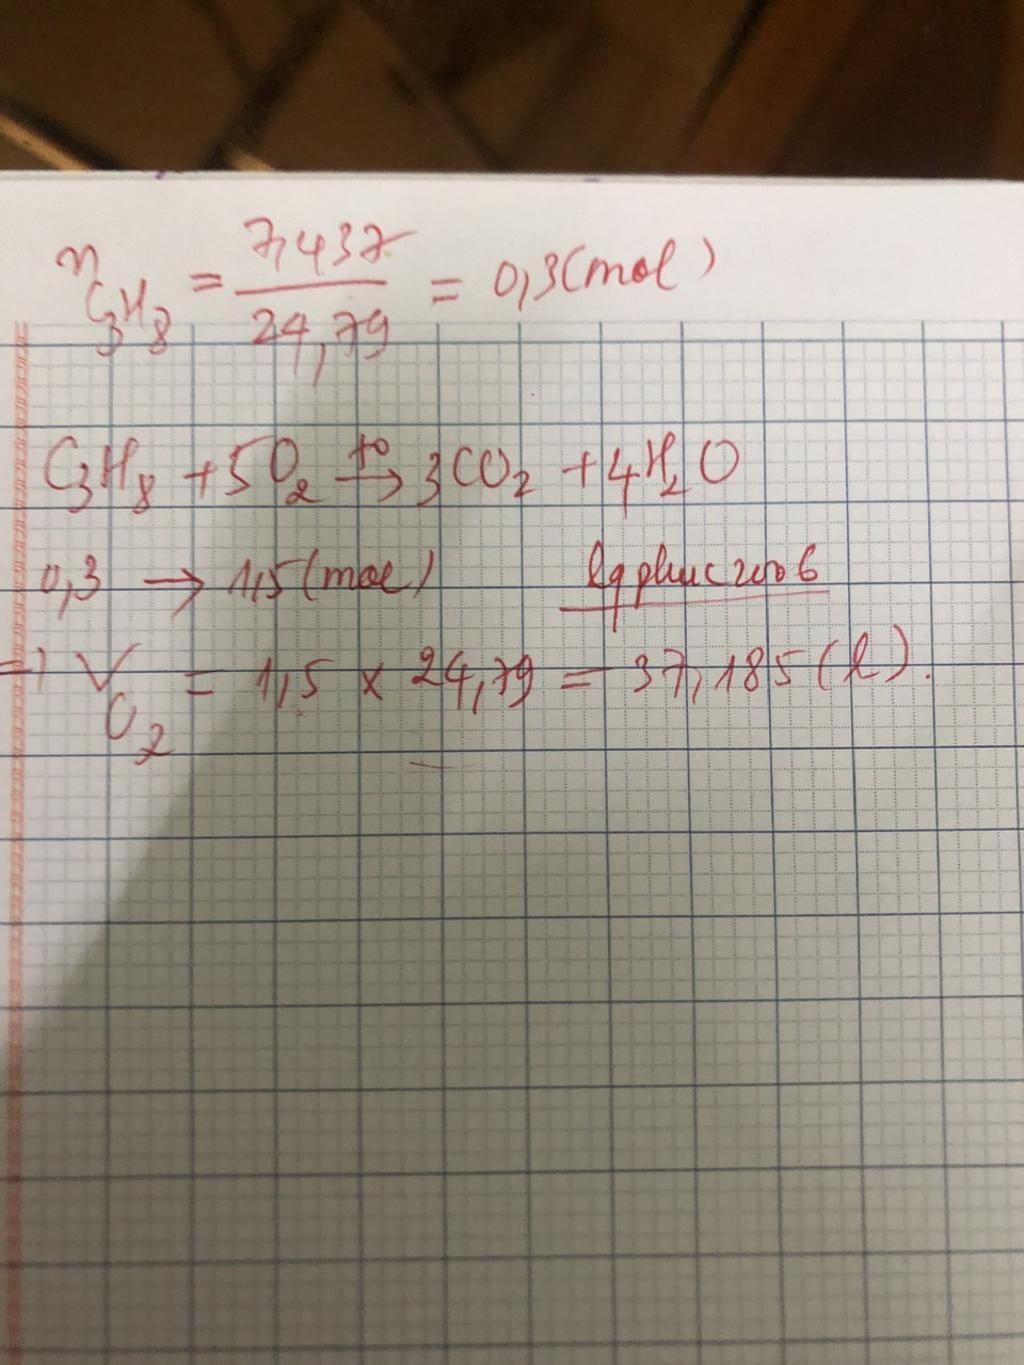 n C₃H₈ = 7,437 / 24,79 = 0,3 (mol)
C₃H₈ + 5O₂ →ᵗ⁰ 3CO₂ + 4H₂O
0,3 → 1,5 (mol)
⇒ V O₂ = 1,5 × 24,79 = 37,185 (l).